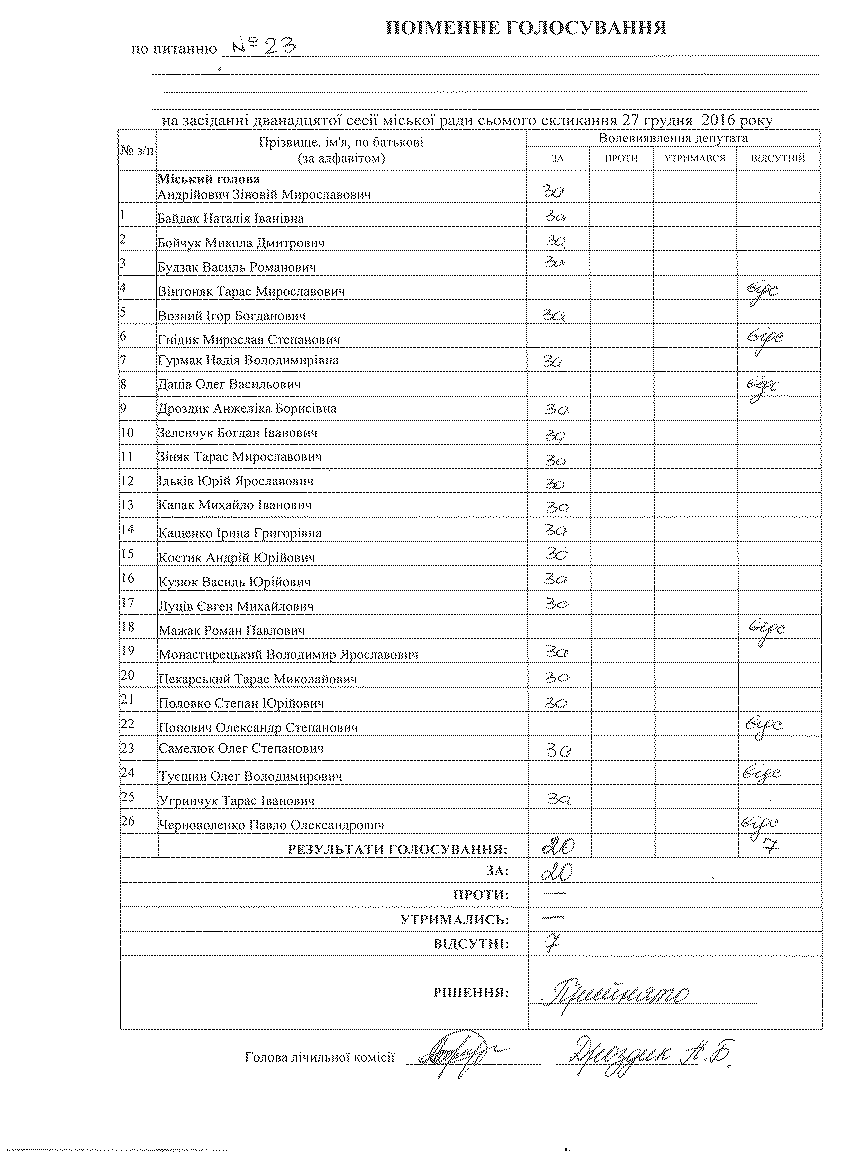 ПОІМЕННЕ ГОЛОСУВАННЯ
по питанню №23
на засіданні дванадцятої сесії міської ради сьомого скликання 27 грудня 2016 року
№ з/п Прізвище, ім'я, по батькові (за алфавітом) Волевиявлення депутата
ЗА ПРОТИ УТРИМАВСЯ ВІДСУТНІЙ
Міський голова
Андрійович Зіновій Мирославович за
1 Байдак Наталія Іванівна за
2 Бойчук Микола Дмитрович за
3 Будзак Василь Романович за
4 Вінтоняк Тарас Мирославович відс
5 Возний Ігор Богданович за
6 Гнідик Мирослав Степанович відс
7 Гурмак Надія Володимирівна за
8 Даців Олег Васильович відс
9 Дроздик Анжеліка Борисівна за
10 Зеленчук Богдан Іванович за
11 Зіняк Тарас Мирославович за
12 Ідьків Юрій Ярославович за
13 Капак Михайло Іванович за
14 Кащенко Ірина Григорівна за
15 Костик Андрій Юрійович за
16 Кузюк Василь Юрійович за
17 Луців Євген Михайлович за
18 Мажак Роман Павлович відс
19 Монастирецький Володимир Ярославович за
20 Пекарський Тарас Миколайович за
21 Половко Степан Юрійович за
22 Попович Олександр Степанович відс
23 Самелюк Олег Степанович за
24 Туєшин Олег Володимирович відс
25 Угринчук Тарас Іванович за
26 Черноволенко Павло Олександрович відс
РЕЗУЛЬТАТИ ГОЛОСУВАННЯ: 20 7
ЗА: 20
ПРОТИ: —
УТРИМАЛИСЬ: —
ВІДСУТНІ: 7
РІШЕННЯ: Прийнято
Голова лічильної комісії Дроздик А.Б.